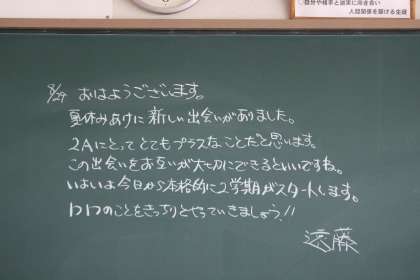 自分や相手と誠実に向き合い
人間関係を築ける生徒
8/29 おはようございます。
夏休みあけに新しい出会いがありました。
2Aにとってとてもプラスなことだと思います。
この出会いをお互いが大切にできるといいですね。
いよいよ今日から本格的に2学期がスタートします。
1つ1つのことをきっちりとやっていきましょう!!
遠藤